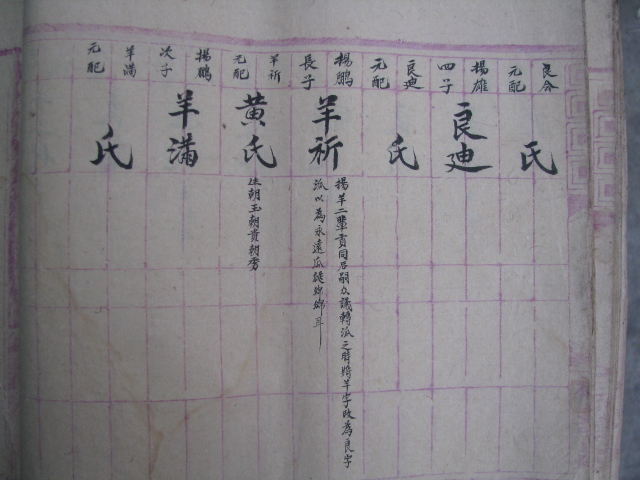 良會
元配
氏
揚雄
四子
良廸
良廸
元配
氏
揚鵬
長子
羊祈
揚羊二輩實同名嗣众議轉派之時將羊字改為良字
派以為永遠瓜綿綿耳
羊祈
元配
黃氏
生朝玉朝貴朝秀
揚鵬
次子
羊滿
羊滿
元配
氏